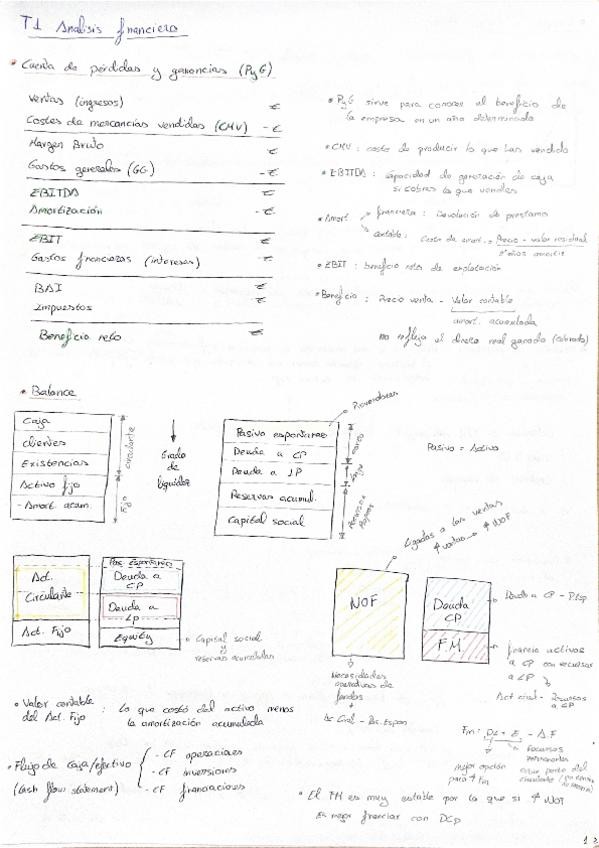 T1 Analisis financiero
• Cuenta de pérdidas y ganancias (PyG)
Ventas (ingresos) €
Costes de mercancias vendidas (CMV) - €
Margen Bruto €
Gastos generales (GG) - €
EBITDA €
Amortización - €
EBIT €
Gastos financieros (intereses) - €
BAI €
Impuestos €
Beneficio neto €
• PyG sirve para conocer el beneficio de
la empresa en un año determinado
• CMV: coste de producir lo que has vendido
• EBITDA: capacidad de generación de caja
si cobras lo que vendes
• Amort.
financiera: Devolución de prestamo
contable: Cuota de amort. = Precio - valor residual
nº años amortiz
• EBIT: beneficio neto de explotación
• Beneficio: Precio venta - Valor contable
amort. acumulada
no refleja el dinero real ganado (cobrado)
• Balance
Caja
Clientes
Existencias
Activo fijo
- Amort. acum.
circulante
Fijo
Grado
de
liquidez
Proveedores
Pasivo espontaneo
Deuda a CP
Deuda a LP
Reservas acumul.
Capital social
Recursos
Propios
Pasivo = Activo
Act.
Circulante
Act. Fijo
Pas. espontaneo
Deuda a
CP
Deuda a
LP
Equity
Capital social
y
reservas acumuladas
Ligadas a las ventas
↑ ventas → ↑ NOF
NOF
Deuda
CP
F.M.
Necesidades
operativas de
fondos
Ac Circl - Pas. Espon
financia activos
a CP con recursos
a LP
Act circul - Recursos
a CP
FM: DL + E - AF
Recursos
Permanentes
mejor opción
para ↑ FM
• Valor contable
del Act. Fijo : lo que costó del activo menos
la amortización acumulada
• Flujo de caja/efectivo
(Cash flow statement)
- CF operaciones
- CF inversiones
- CF financiaciones
• El FM es muy estable por lo que si ↑ NOF
Es mejor financiar con DCp